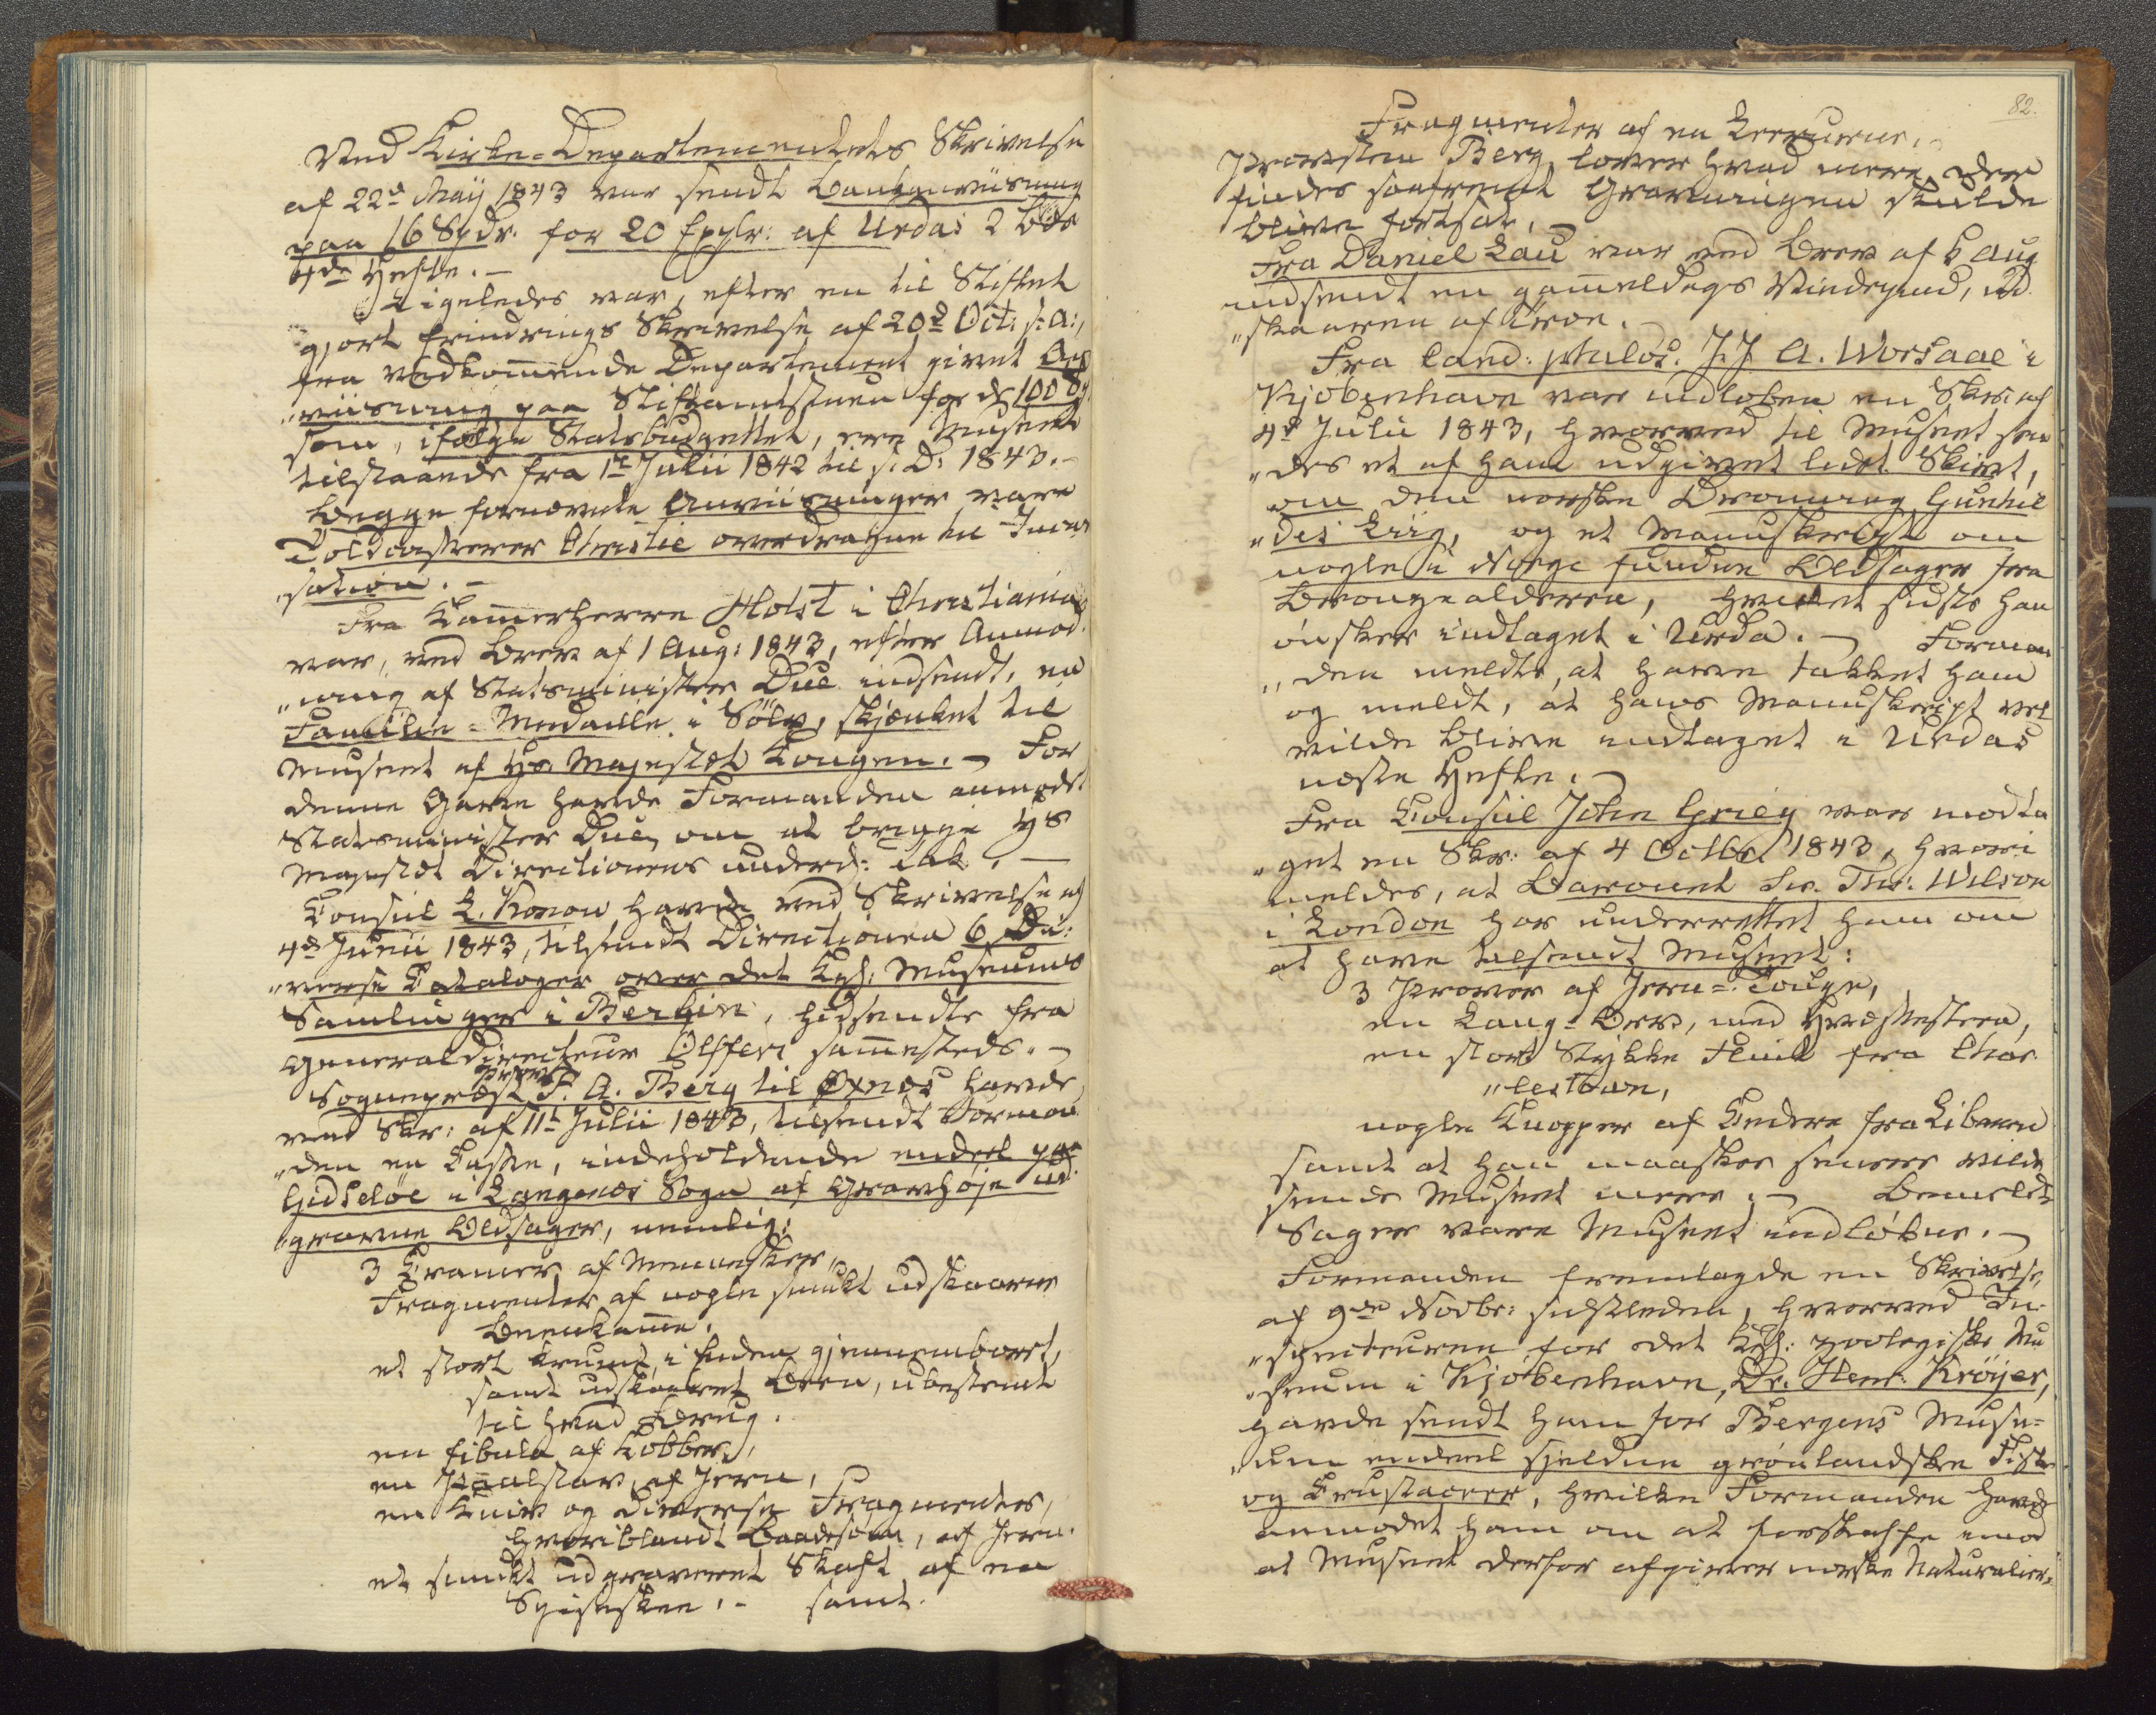 Med Kirke-Departementets Skrivelse
af 22d May 1843 var sendt Bankanviisning
paa 16 Spdr. for 20 Explr: af Urdas 2 Bds
4de Hefte. —
Ligeledes var, efter en til Stiftet
gjort Erindrings Skrivelse af 20d Oct: s: A:,
fra vedkommende Departement givet An
„viisning paa Stiftamtstuen for de 100 Sp
som, ifølge Statsbudgettet, ere Museet
tilstaaede fra 1te Julii 1842 til s: D: 1843. —
Begge fornævnte Anviisninger vare
Toldkasserer Christie overdragne til Incas
„sation. —
Fra Kammerherre Holst i Christiania
var, ved Brev af 1 Aug: 1843, efter Anmod
„ning af Statsminister Due indsendt, en
Familie-Medaille i Sølv, skjænket til
Museet af Hs Majestæt Kongen. — For
denne Gave havde Formanden anmodet
Statsminister Due, om at bringe Hs
Majestæt Directionens underd: Tak. —
Consul L. Konow havde ved Skrivelse af
4de Junii 1843, tilsendt Directionen 6 Di:
„verse Cataloger over det Kgl: Museums
Samlinger i Berlin, hidsendte fra
Generaldirecteur Olfers sammesteds. —
Provst
Sognepræst P. A. Berg til Øxnæs havde
ved Skr: af 11te Julii 1843, tilsendt Forman
„den en Kasse, indeholdende endeel paa
Gidsløe i Langenæs Sogn af Gravhøje ud
„gravne Oldsager, nemlig:
3 Kranier af Mennesker,
Fragmenter af nogle smukt udskaarne
Beenkamme.
et stort krumt, i Enden gjennemboret,
samt udskaaret Been, ubestemt
til hvad Brug.
en fibula af Kobber,
en Paalstav af Jern,
en Kniv og diverse Fragmenter,
hvoriblandt Baadsøm, af Jern.
et smukt udgraveret Skaft af en
Spiseskee. — samt.
82.
Fragmenter af en Leerurne. —
Provsten Berg lover hvad mere der
findes saafremt Gravningen skulde
blive fortsat. —
Fra Daniel Lau var ved Brev af 6 Aug
indsendt en gammeldags Vindspind, ud
„skaaren af Træe.
Fra Cand: philos. J. J. A. Worsaae i
Kjøbenhavn var indløben en Skr: af
4de Julii 1843, hvorved til Museet sen
„des et af ham udgivet lidet Skivt,
om den norske Dronning Gunhil
„des Liig, og et Manuskript om
nogle i Norge fundne Oldsager fra
Broncealderen, hvilket sidste han
ønsker indtaget i Urda. — Forman
„den meldte, at have takket ham
og meldt, at hans Manuskript vel
vilde blive indtaget i Urdas
næste Hefte. —
Fra Consul John Grieg var modta
„get en Skr: af 4 Octbr 1843, hvori
meldes, at Baronet Sir. Thr: Wilson
i London har underrettet ham om
at have tilsendt Museet:
3 Prøver af Jern-Touge,
en Lang-Bue, med
en stort Stykke Flint fra Char
„lestown,
nogle Knopper af Cedere fra Libanon
samt at han maaskee senere vilde
sende Museet mere. — Bemeldte
Sager vare Museet indløbne. —
Formanden fremlagde en Skrivelse,
af 9de Novbr: sidstleden, hvorved In
„specteuren for det Kgl: zoologiske Mu
„seum i Kjøbenhavn, Dr. Henr. Krøyer,
havde sendt ham for Bergens Muse-
„um endeel sjeldne grønlandske Fiske
og Crustaceer, hvilke Formanden havde
anmodet ham om at forskaffe imod
at Museet derfor afgiver norske Naturalier.